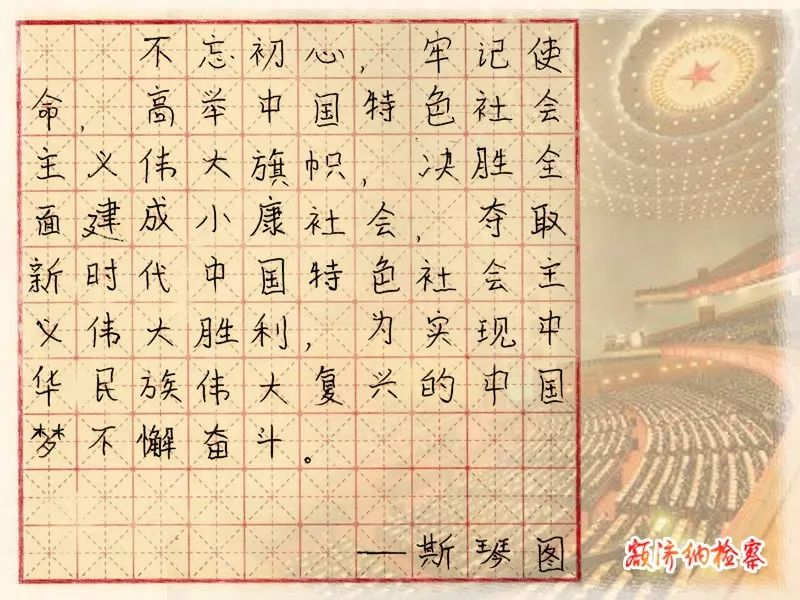 不忘初心，牢记使
命，高举中国特色社会
主义伟大旗帜，决胜全
面建成小康社会，夺取
新时代中国特色社会主
义伟大胜利，为实现中
华民族伟大复兴的中国
梦不懈奋斗。
——斯琴图
额济纳检察